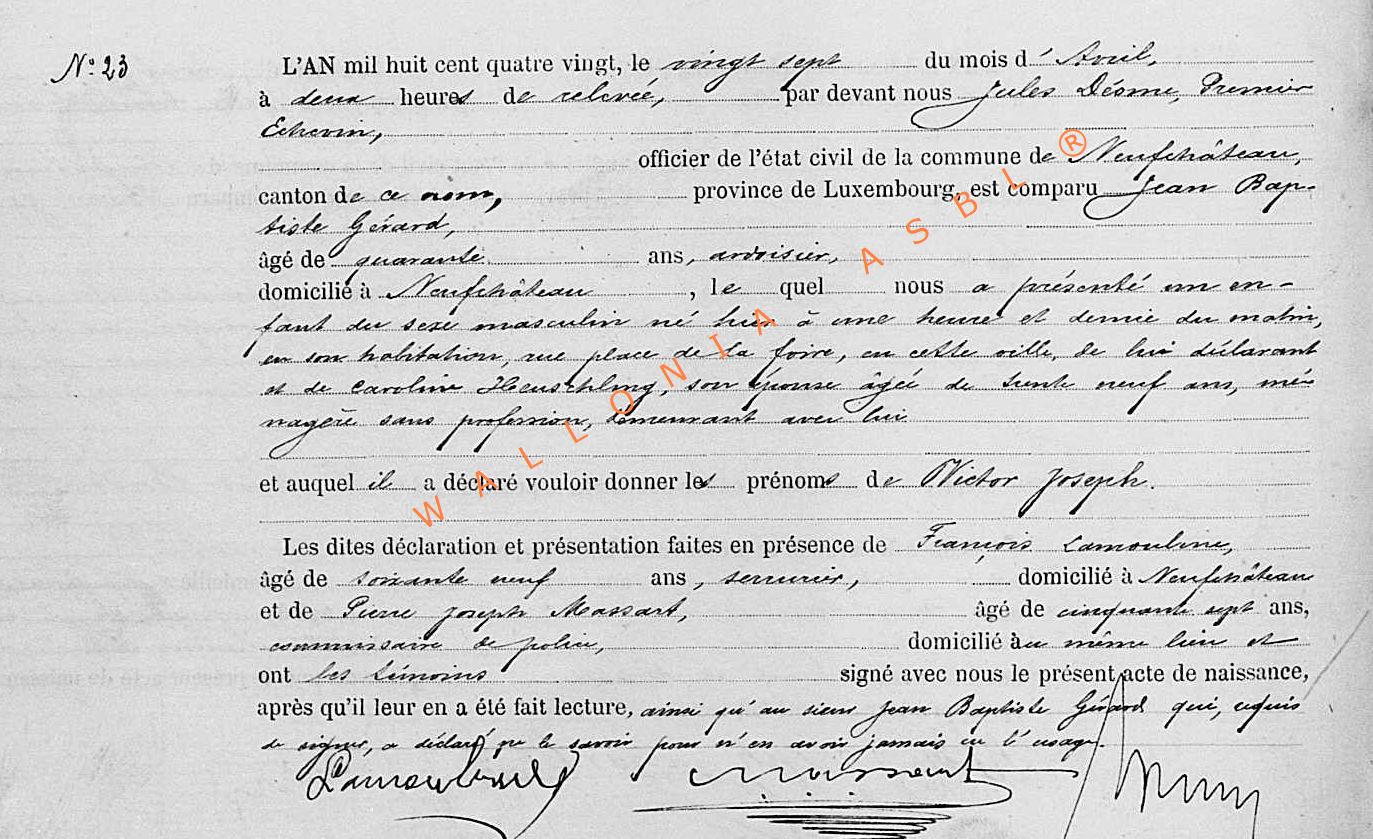 N° 23
L'AN mil huit cent quatre vingt, le vingt sept du mois d'Avril,
à deux heures de relevée, par devant nous Jules Désme, Premier
Echevin,
officier de l'état civil de la commune de Neufchâteau,
canton de ce nom, province de Luxembourg, est comparu Jean Bap-
tiste Gérard,
âgé de quarante ans, ardoisier,
domicilié à Neufchâteau, le quel nous a présenté un en-
fant du sexe masculin né hier à une heure et demie du matin,
en son habitation, rue place de la foire, en cette ville, de lui déclarant
et de Caroline Heuschling, son épouse âgée de trente neuf ans, mé-
nagère sans profession, demeurant avec lui
et auquel il a déclaré vouloir donner les prénoms de Victor Joseph.
Les dites déclaration et présentation faites en présence de François Lamouline,
âgé de soixante neuf ans, serrurier, domicilié à Neufchâteau
et de Pierre Joseph Massart, âgé de cinquante sept ans,
commissaire de police, domicilié au même lieu et
ont les témoins signé avec nous le présent acte de naissance,
après qu'il leur en a été fait lecture, ainsi qu'au sieur Jean Baptiste Gérard qui, requis
de signer, a déclaré ne le savoir pour n'en avoir jamais eu l'usage.
Lamouline Massart
WALLONIA ASBL ®